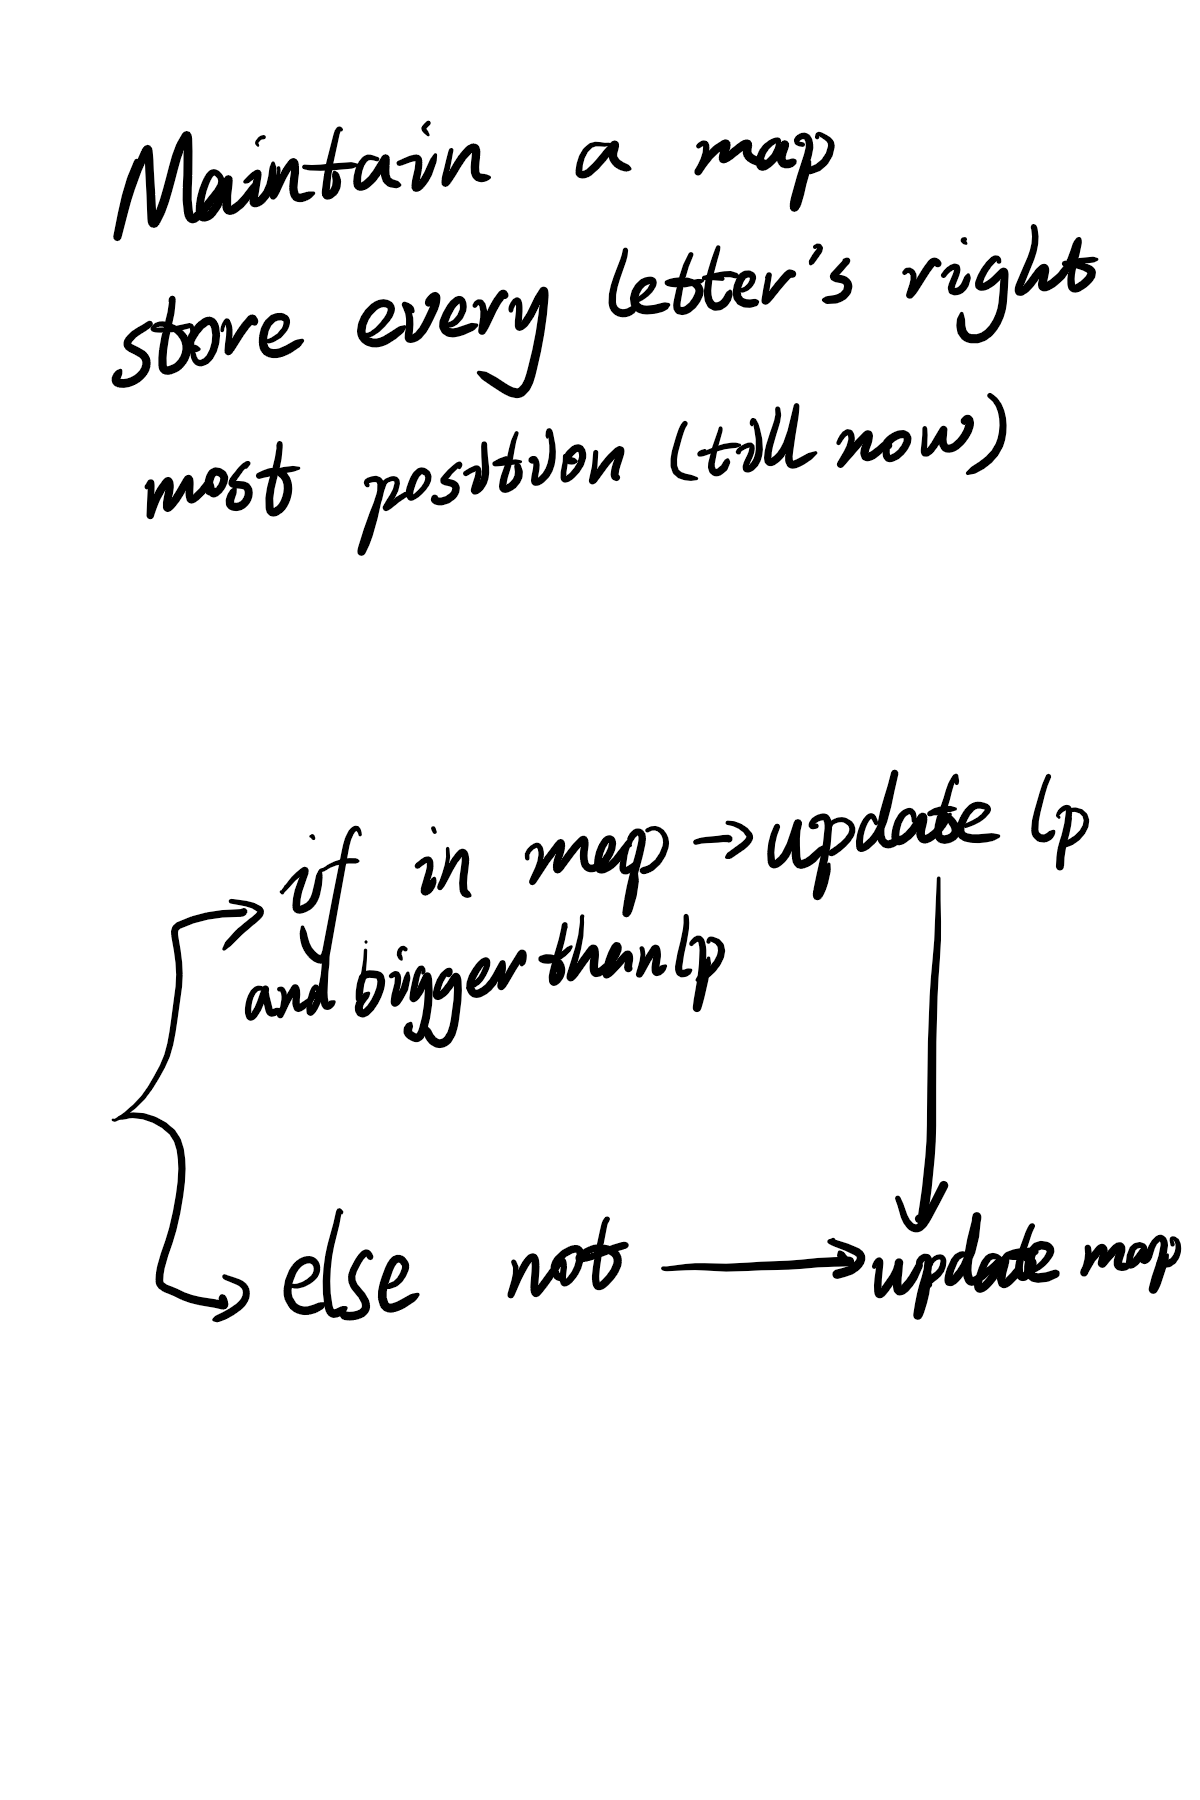 Maintain a map
store every letter's right
most position (till now)
if in map → update lp
and bigger than lp
else not → update map